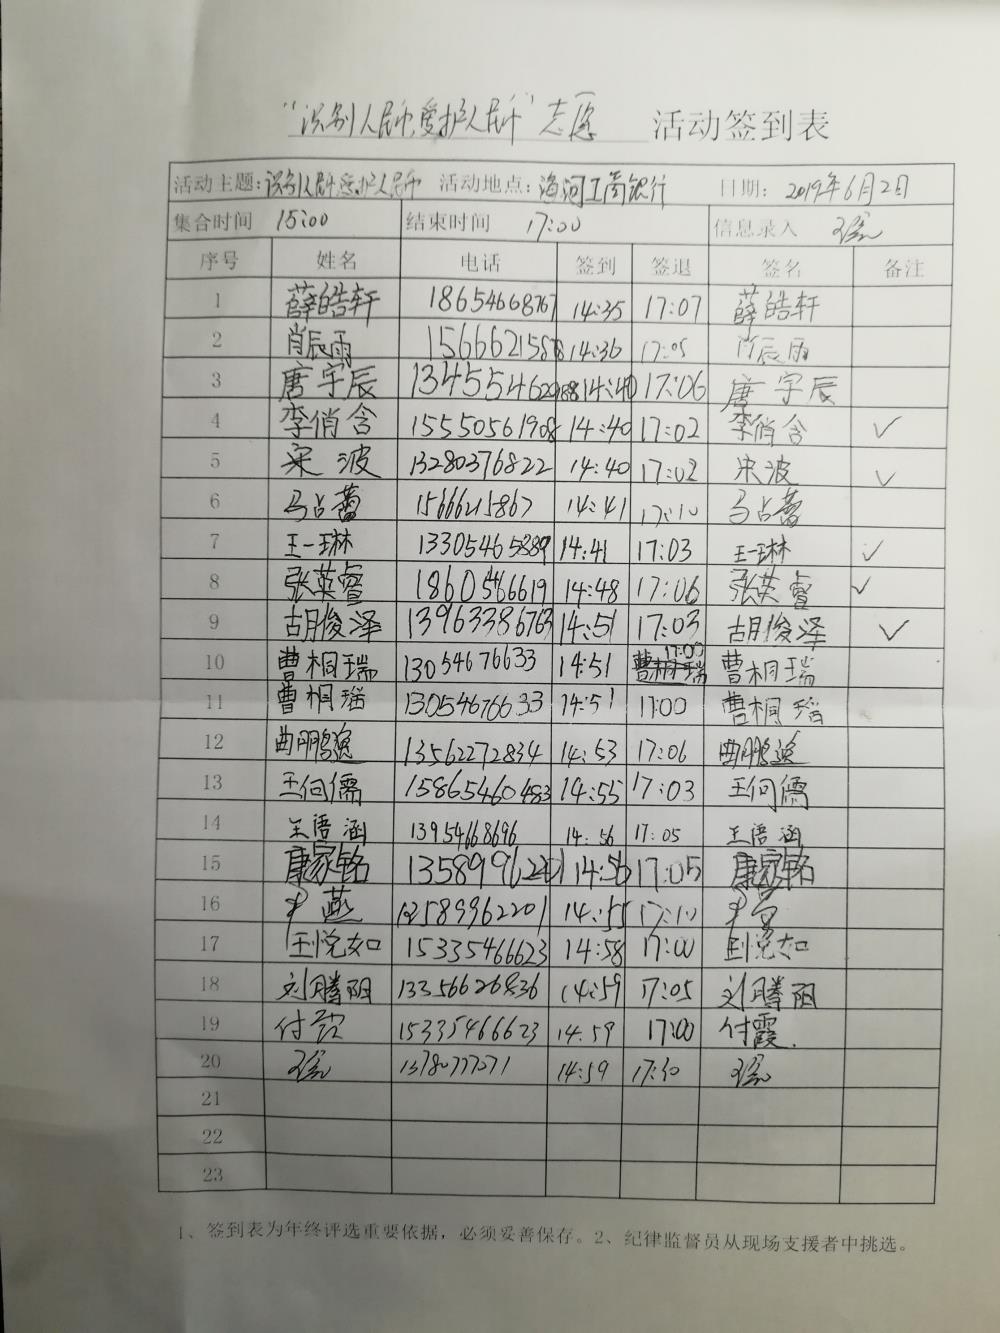 "识别人民币,爱护人民币"志愿 活动签到表
活动主题:识别人民币,爱护人民币 活动地点:海河工商银行 日期: 2019年6月2日
集合时间 15:00 结束时间 17:00 信息录入
序号 姓名 电话 签到 签退 签名 备注
1 薛皓轩 18654668767 14:35 17:07 薛皓轩
2 肖辰雨 14:36 17:05 肖辰雨
3 唐宇辰 14:40 17:06 唐宇辰
4 李俏含 15550561908 14:40 17:02 李俏含 ✓
5 宋波 13280376822 14:40 17:02 宋波 ✓
6 马占蕾 14:41 17:10 马占蕾
7 王一琳 13305465889 14:41 17:03 王一琳 ✓
8 张英睿 14:48 17:06 张英睿 ✓
9 胡俊泽 13963386763 14:51 17:03 胡俊泽 ✓
10 曹桐瑞 13054676633 14:51 17:00 曹桐瑞 曹桐瑞
11 曹桐瑶 13054676633 14:51 17:00 曹桐瑶
12 曲鹏逸 13562272834 14:53 17:06 曲鹏逸
13 王向儒 15865460483 14:55 17:03 王向儒
14 王语涵 13954668696 14:56 17:05 王语涵
15 康家铭 13589962201 14:56 17:05 康家铭
16 燕 13589962201 14:55 17:10
17 刘悦如 15335466623 14:58 17:00 刘悦如
18 刘腾阳 13356626836 14:59 17:05 刘腾阳
19 付霞 15335466623 14:59 17:00 付霞.
20 13780777071 14:59 17:30
21
22
23
1、签到表为年终评选重要依据，必须妥善保存。2、纪律监督员从现场支援者中挑选。